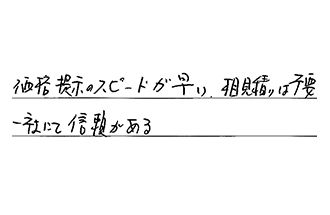 価格提示のスピードが早い、相見積りは不要
一社にて信頼がある